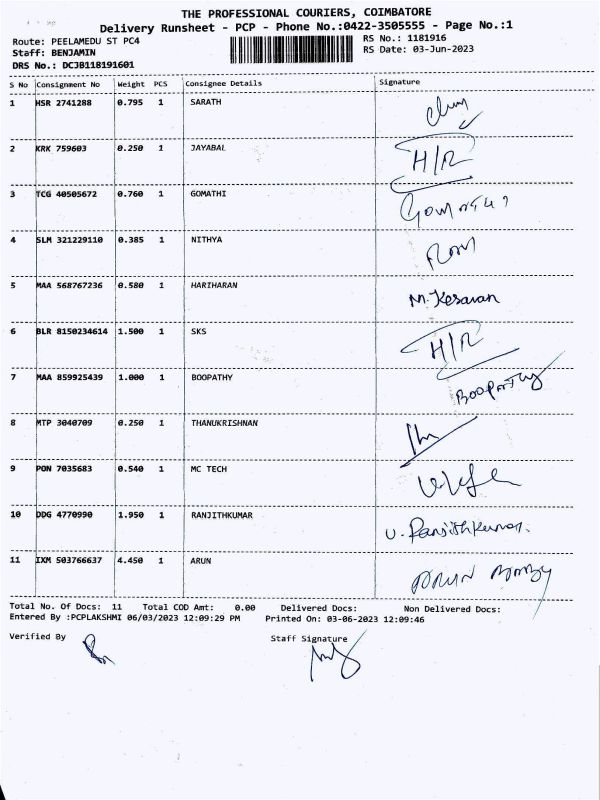 THE PROFESSIONAL COURIERS, COIMBATORE
Delivery Runsheet - PCP - Phone No.:0422-3505555 - Page No.:1
Route: PEELAMEDU ST PC4
RS No.: 1181916
Staff: BENJAMIN
RS Date: 03-Jun-2023
DRS No.: DCJB118191601
S No Consignment No Weight PCS Consignee Details Signature
1 HSR 2741288 0.795 1 SARATH
2 KRK 759603 0.250 1 JAYABAL H/R
3 TCG 40505672 0.760 1 GOMATHI
4 SLM 321229110 0.385 1 NITHYA
5 MAA 568767236 0.580 1 HARIHARAN M. Kesavan
6 BLR 8150234614 1.500 1 SKS H/R
7 MAA 859925439 1.000 1 BOOPATHY BOOPATHY
8 MTP 3040709 0.250 1 THANUKRISHNAN
9 PON 7035683 0.540 1 MC TECH
10 DDG 4770990 1.950 1 RANJITHKUMAR U. Ranjithkumar.
11 IXM 503766637 4.450 1 ARUN ARUN
Total No. Of Docs: 11 Total COD Amt: 0.00 Delivered Docs: Non Delivered Docs:
Entered By :PCPLAKSHMI 06/03/2023 12:09:29 PM Printed On: 03-06-2023 12:09:46
Verified By Staff Signature